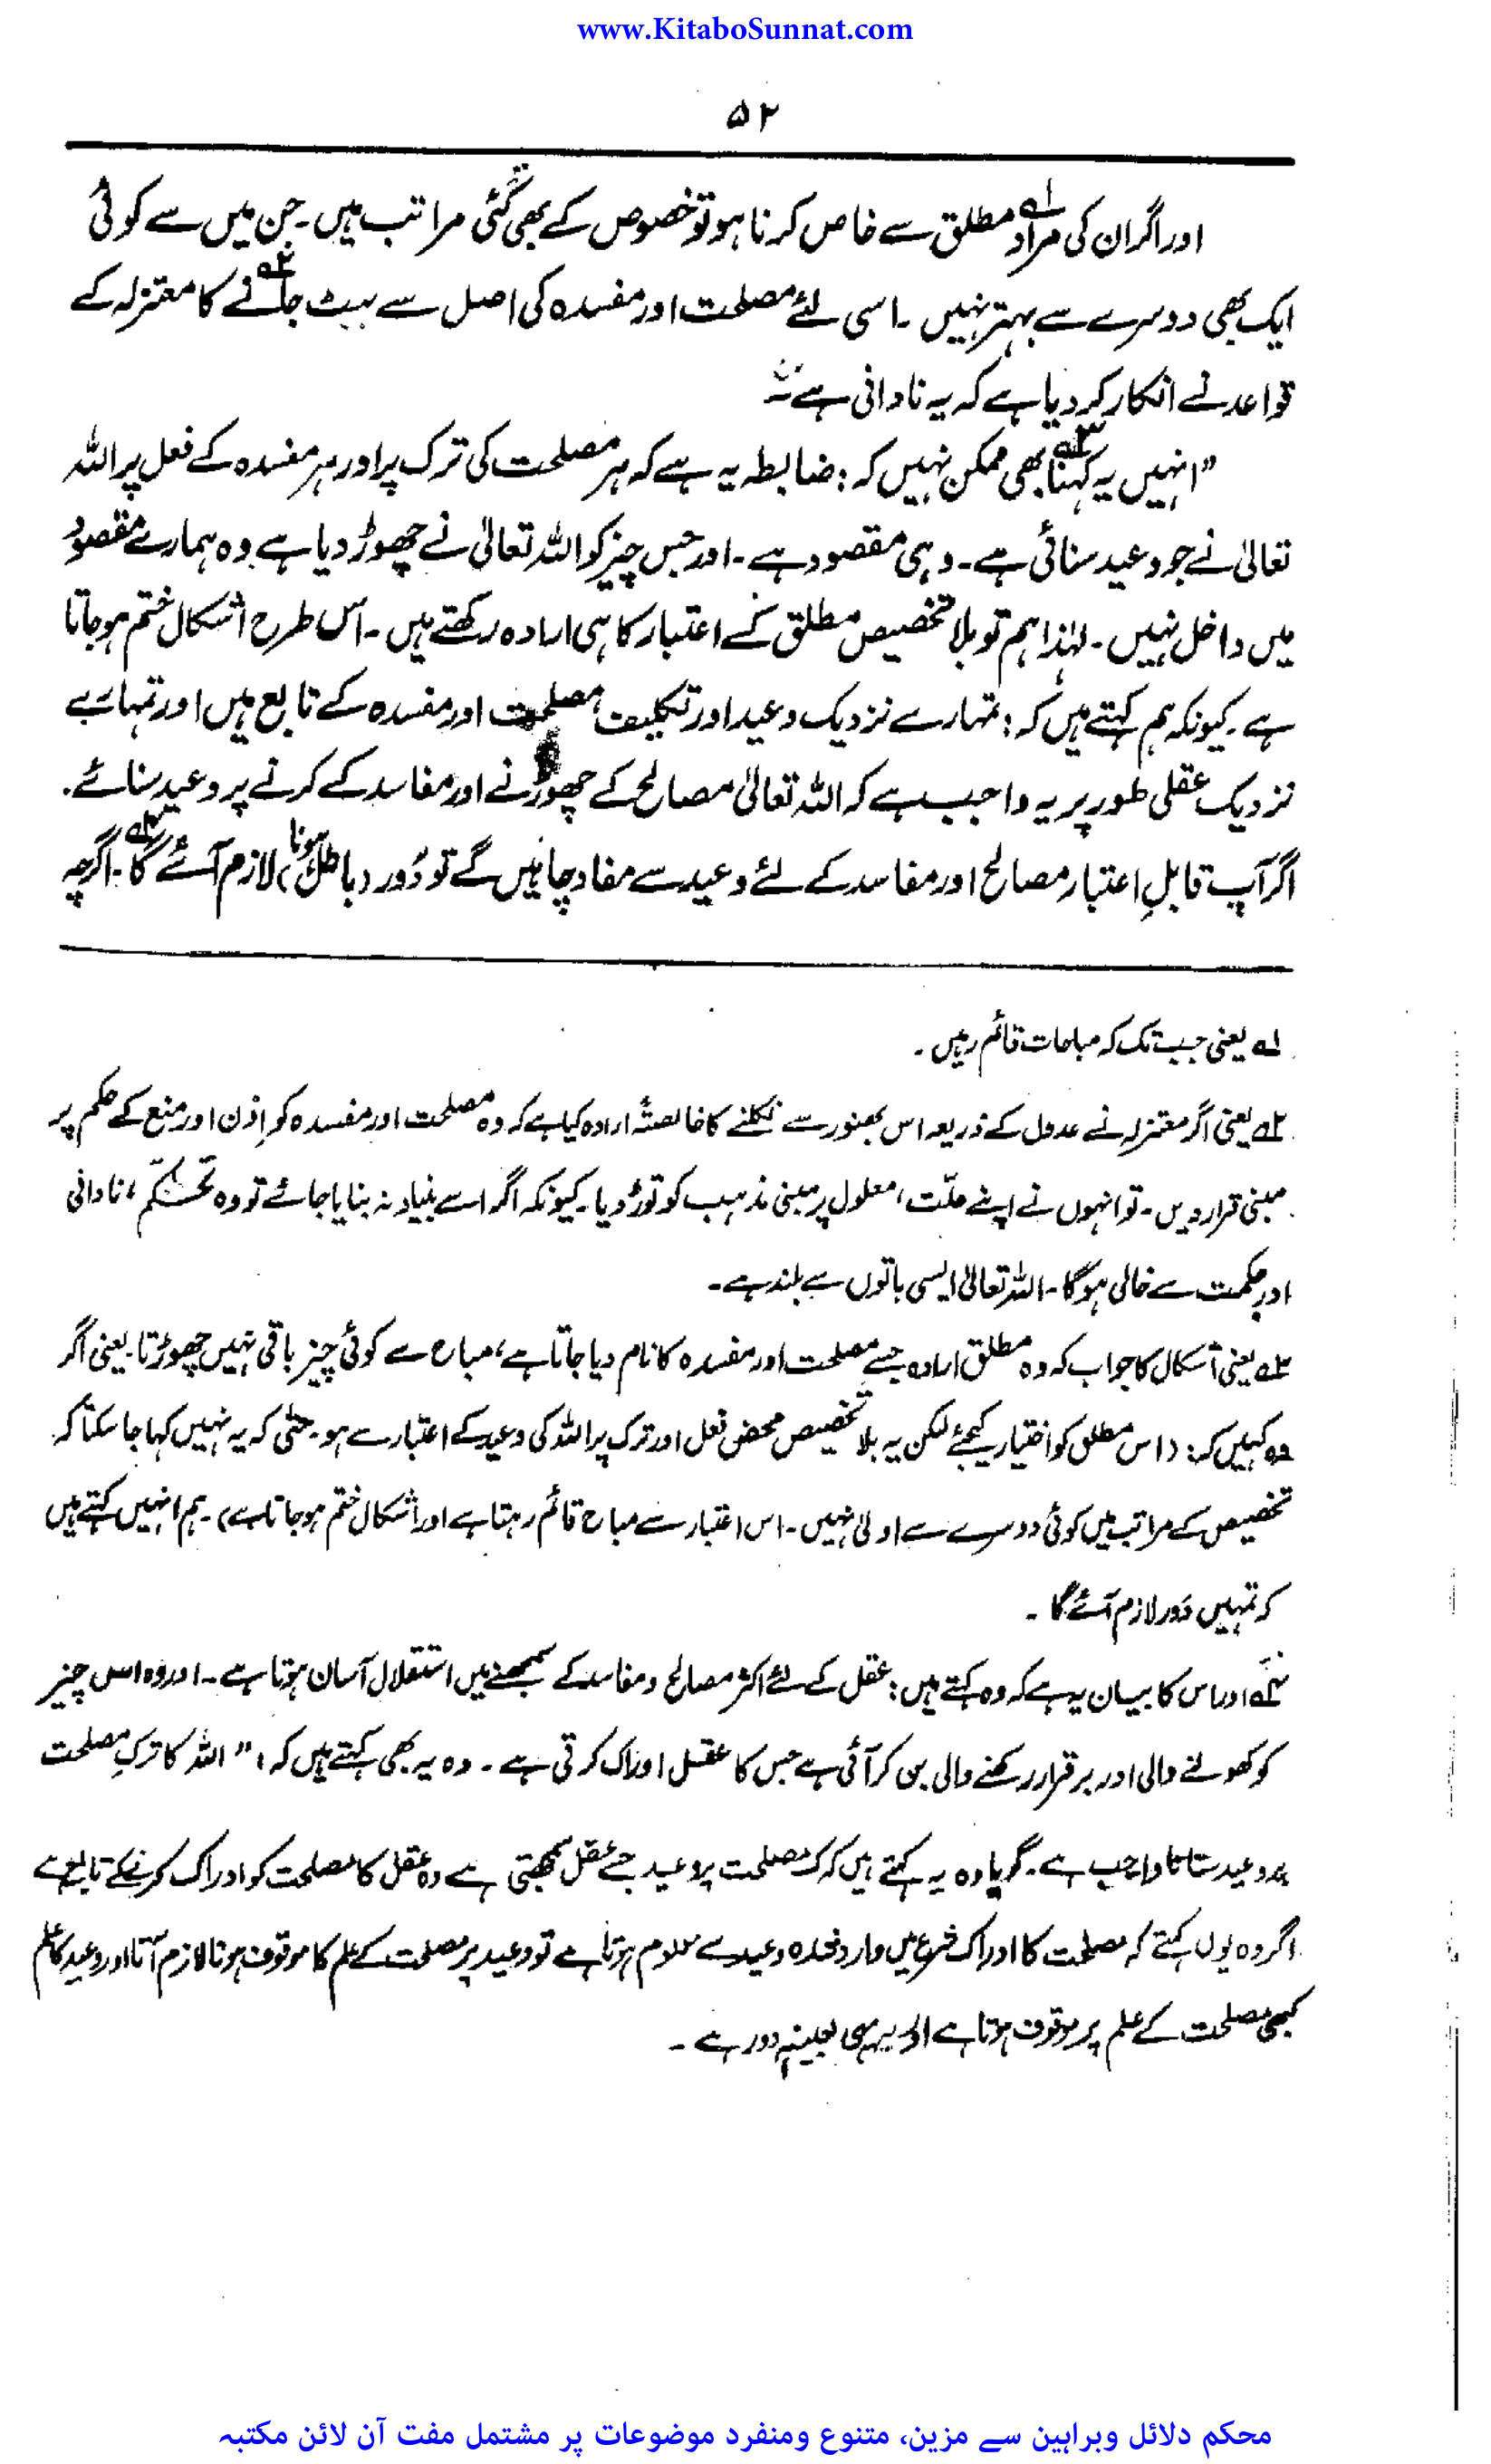 www.KitaboSunnat.com
۵۲
اور اگر ان کی مراد؎۱ مطلق سے خاص کرنا ہو تو خصوص کے بھی کئی مراتب ہیں۔ جن میں سے کوئی
ایک بھی دوسرے سے بہتر نہیں۔ اسی لئے مصلحت اور مفسدہ کی اصل سے ہٹ جانے؎۲ کا معتزلہ کے
قواعد نے انکار کر دیا ہے کہ یہ نادانی ہے۔
"انہیں یہ کہنا؎۳ بھی ممکن نہیں کہ: ضابطہ یہ ہے کہ ہر مصلحت کی ترک پر اور ہر مفسدہ کے فعل پر اللہ
تعالیٰ نے جو وعید سنائی ہے۔ وہی مقصود ہے۔ اور جس چیز کو اللہ تعالیٰ نے چھوڑ دیا ہے وہ ہمارے مقصود
میں داخل نہیں۔ لہٰذا ہم تو بلا تخصیص مطلق کے اعتبار کا ہی ارادہ رکھتے ہیں۔ اس طرح اشکال ختم ہو جاتا
ہے۔ کیونکہ ہم کہتے ہیں کہ: تمہارے نزدیک وعید اور تکلیف، مصلحت اور مفسدہ کے تابع ہیں اور تمہارے
نزدیک عقلی طور پر یہ واجب ہے کہ اللہ تعالیٰ مصالح کے چھوڑنے اور مفاسد کے کرنے پر وعید سنائے.
اگر آپ قابلِ اعتبار مصالح اور مفاسد کے لئے وعید سے مفاد چاہیں گے تو دَور (باطل ہونا) لازم آئے گا؎۴۔ اگرچہ
؎۱ یعنی جب تک کہ مباحات قائم رہیں۔
؎۲ یعنی اگر معتزلہ نے عدول کے ذریعہ اس بھنور سے نکلنے کا خالصتًہ ارادہ کیا ہے کہ وہ مصلحت اور مفسدہ کو اِذن اور منع کے حکم پر
مبنی قرار دیں۔ تو انہوں نے اپنے علّت، معلول پر مبنی مذہب کو توڑ دیا۔ کیونکہ اگر اسے بنیاد نہ بنایا جائے تو وہ تحکّم، نادانی
اور حکمت سے خالی ہوگا۔ اللہ تعالیٰ ایسی باتوں سے بلند ہے۔
؎۳ یعنی اشکال کا جواب کہ وہ مطلق ارادہ جسے مصلحت اور مفسدہ کا نام دیا جاتا ہے، مباح سے کوئی چیز باقی نہیں چھوڑتا۔ یعنی اگر
وہ کہیں کہ: (اس مطلق کو اختیار کیجئے لیکن یہ بلا تخصیص محض فعل اور ترک پر اللہ کی وعید کے اعتبار سے ہو۔ حتٰی کہ یہ نہیں کہا جا سکتا کہ
تخصیص کے مراتب میں کوئی دوسرے سے اولیٰ نہیں۔ اس اعتبار سے مباح قائم رہتا ہے اور اشکال ختم ہو جاتا ہے)۔ ہم انہیں کہتے ہیں
کہ تمہیں دَور لازم آئے گا۔
؎۴ اور اس کا بیان یہ ہے کہ وہ کہتے ہیں: عقل کے لئے اکثر مصالح و مفاسد کے سمجھنے میں استقلال آسان ہوتا ہے۔ اور وہ اس چیز
کو کھولنے والی اور برقرار رکھنے والی بن کر آئی ہے جس کا عقل ادراک کرتی ہے۔ وہ یہ بھی کہتے ہیں کہ: "اللہ کا ترکِ مصلحت
پر وعید سنانا واجب ہے۔ گویا وہ یہ کہتے ہیں کہ ترک مصلحت پر وعید جسے عقل سمجھتی ہے وہ عقل کا مصلحت کو ادراک کرنے کے تابع ہے
اگر وہ یوں کہتے کہ مصلحت کا ادراک شرع میں وارد شدہ وعید سے معلوم ہوتا ہے تو وعید پر مصلحت کے علم کا موقوف ہونا لازم آتا اور وعید کا علم
کبھی مصلحت کے علم پر موقوف ہوتا ہے اور یہی بعینہٖ دور ہے۔
محکم دلائل وبراہین سے مزین، متنوع ومنفرد موضوعات پر مشتمل مفت آن لائن مکتبہ